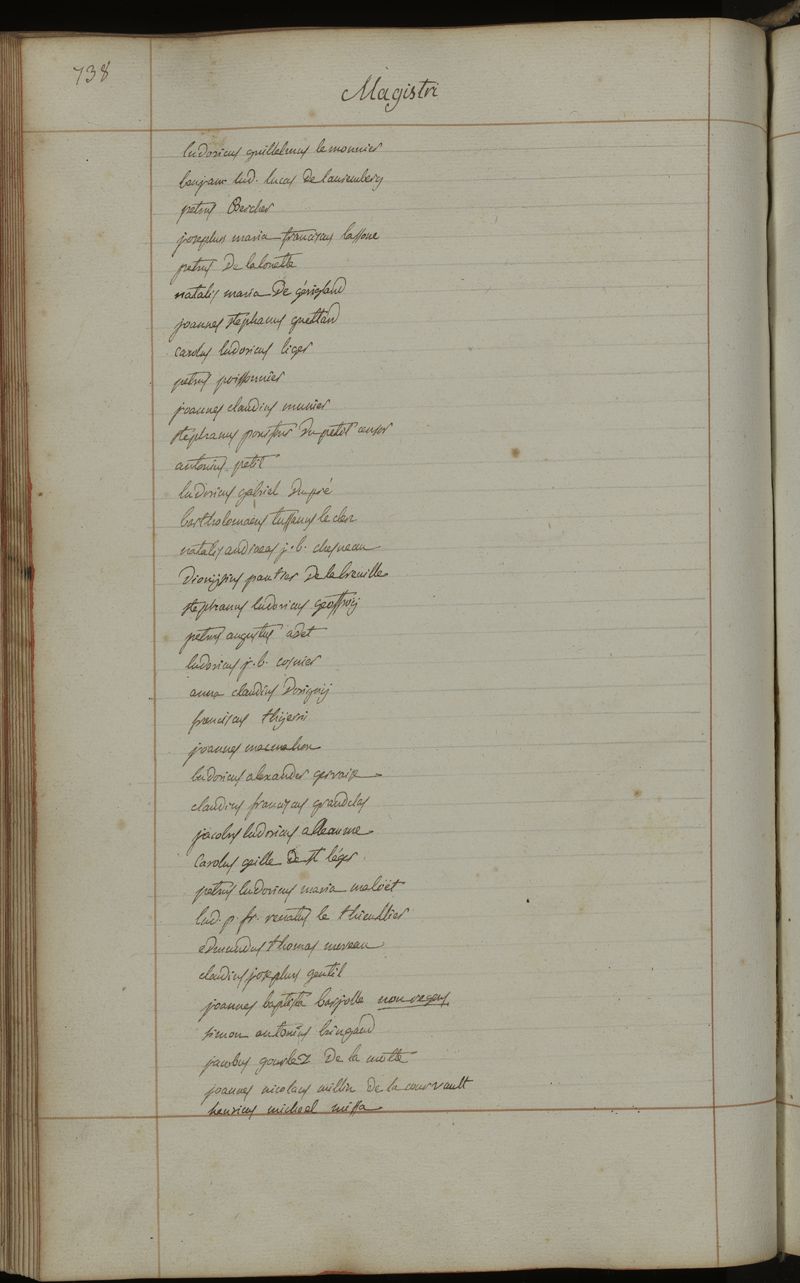 738
Magistri
ludovicus guillelmus le monnier
benjam lud. lucas De lauremberg
petrus Bercher
josephus maria franciscus lassone
petrus De lalouette
natalis maria De gévigland
joannes stephanus guettard
carolus ludovicus liger
petrus poissonnier
joannes claudius munier
stephanus pourfour Du petit censor
antonius petit
ludovicus gabriel Dupré
bartholomaeus tussanus le clerc
natalis andraeas j. b. chesneau
Dionysius pautier De la breuille
stephanus ludovicus geoffroij
petrus augustus adet
ludovicus j. b. cosnier
anna claudius Dorignij
franciscus thijerri
joannes macmahon
ludovicus alexander gervaise
claudius franciscus grandclas
jacobus ludovicus alleaume
Carolus geille De st léger
petrus ludovicus maria maloët
lud. p. fr. renatus le thieullier
edmundus thomas moreau
claudius josephus gentil
joannes baptista basjolle non regens
simon antonius bringaud
jacobus gourlez De la motte
joannes nicolaus millin De la courvault
henricus michael missa